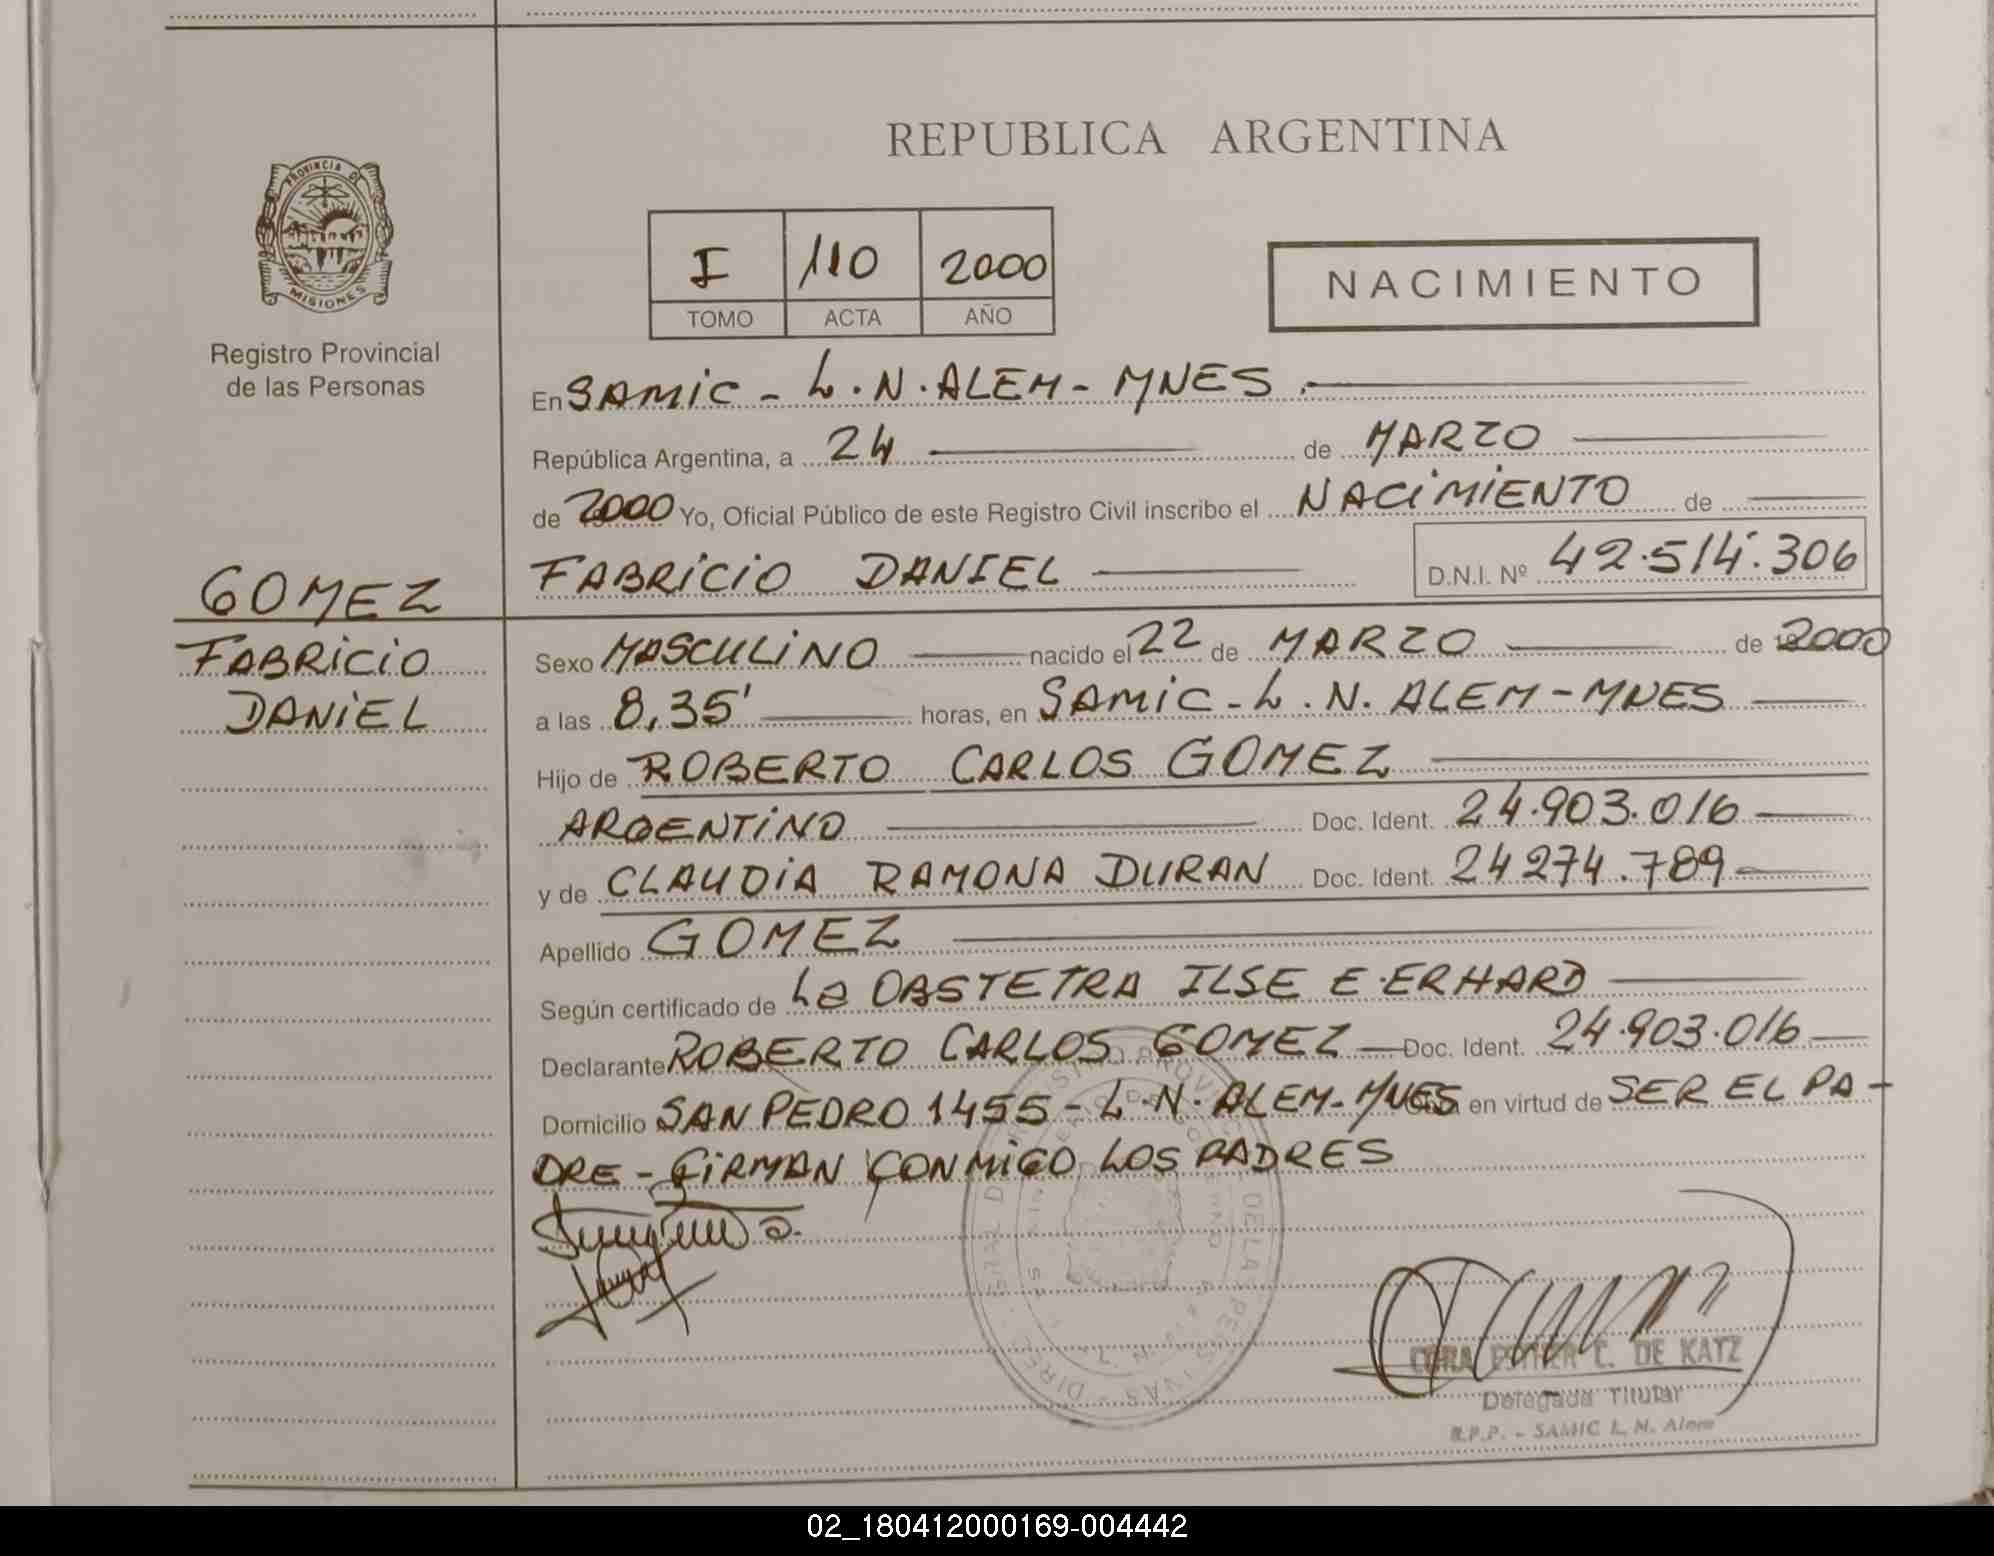 REPUBLICA ARGENTINA
PROVINCIA DE
MISIONES
I 110 2000
TOMO ACTA AÑO
NACIMIENTO
Registro Provincial
de las Personas
En SAMIC - L.N.ALEM - MNES.
República Argentina, a 24 de MARZO
de 2000 Yo, Oficial Público de este Registro Civil inscribo el NACIMIENTO de
FABRICIO DANIEL D.N.I. Nº 42.514.306
GOMEZ
FABRICIO
DANIEL
Sexo MASCULINO nacido el 22 de MARZO de 2000
a las 8,35' horas, en SAMIC - L.N. ALEM - MNES
Hijo de ROBERTO CARLOS GOMEZ
ARGENTINO Doc. Ident. 24.903.016
y de CLAUDIA RAMONA DURAN Doc. Ident. 24274.789
Apellido GOMEZ
Según certificado de La OBSTETRA ILSE E.ERHARD
Declarante ROBERTO CARLOS GOMEZ Doc. Ident. 24.903.016
Domicilio SAN PEDRO 1455 - L.N. ALEM - MNES en virtud de SER EL PA-
DRE - FIRMAN CONMIGO LOS PADRES
ESTHER C. DE KATZ
Delegada Titular
R.P.P. - SAMIC L. N. Alem
02_180412000169-004442